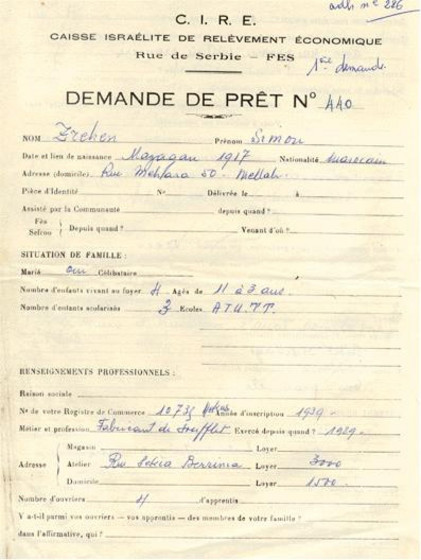 adh n° 226
C. I. R. E.
CAISSE ISRAÉLITE DE RELÈVEMENT ÉCONOMIQUE
Rue de Serbie - FES
1ère demande
DEMANDE DE PRÊT N° 440
NOM Zrehen Prénom Simon
Date et lieu de naissance Mazagan 1917 Nationalité marocain
Adresse (domicile) Rue 50 Mellah
Pièce d'Identité N° Délivrée le à
Assisté par la Communauté depuis quand ?
Fès
Sefrou
Depuis quand ? Venant d'où ?
SITUATION DE FAMILLE :
Marié oui Célibataire
Nombre d'enfants vivant au foyer 4 Agés de 11 à 3 ans.
Nombre d'enfants scolarisés 3 Ecoles
RENSEIGNEMENTS PROFESSIONNELS :
Raison sociale
N° de votre Registre de Commerce Année d'inscription 1939
Métier et profession Fabricant de Soufflet Exercé depuis quand ? 1929
Adresse
Magasin Loyer
Atelier Rue Loyer 3000
Domicile Loyer 1500
Nombre d'ouvriers 4 d'apprentis
Y a-t-il parmi vos ouvriers - vos apprentis - des membres de votre famille ?
dans l'affirmative, qui ?